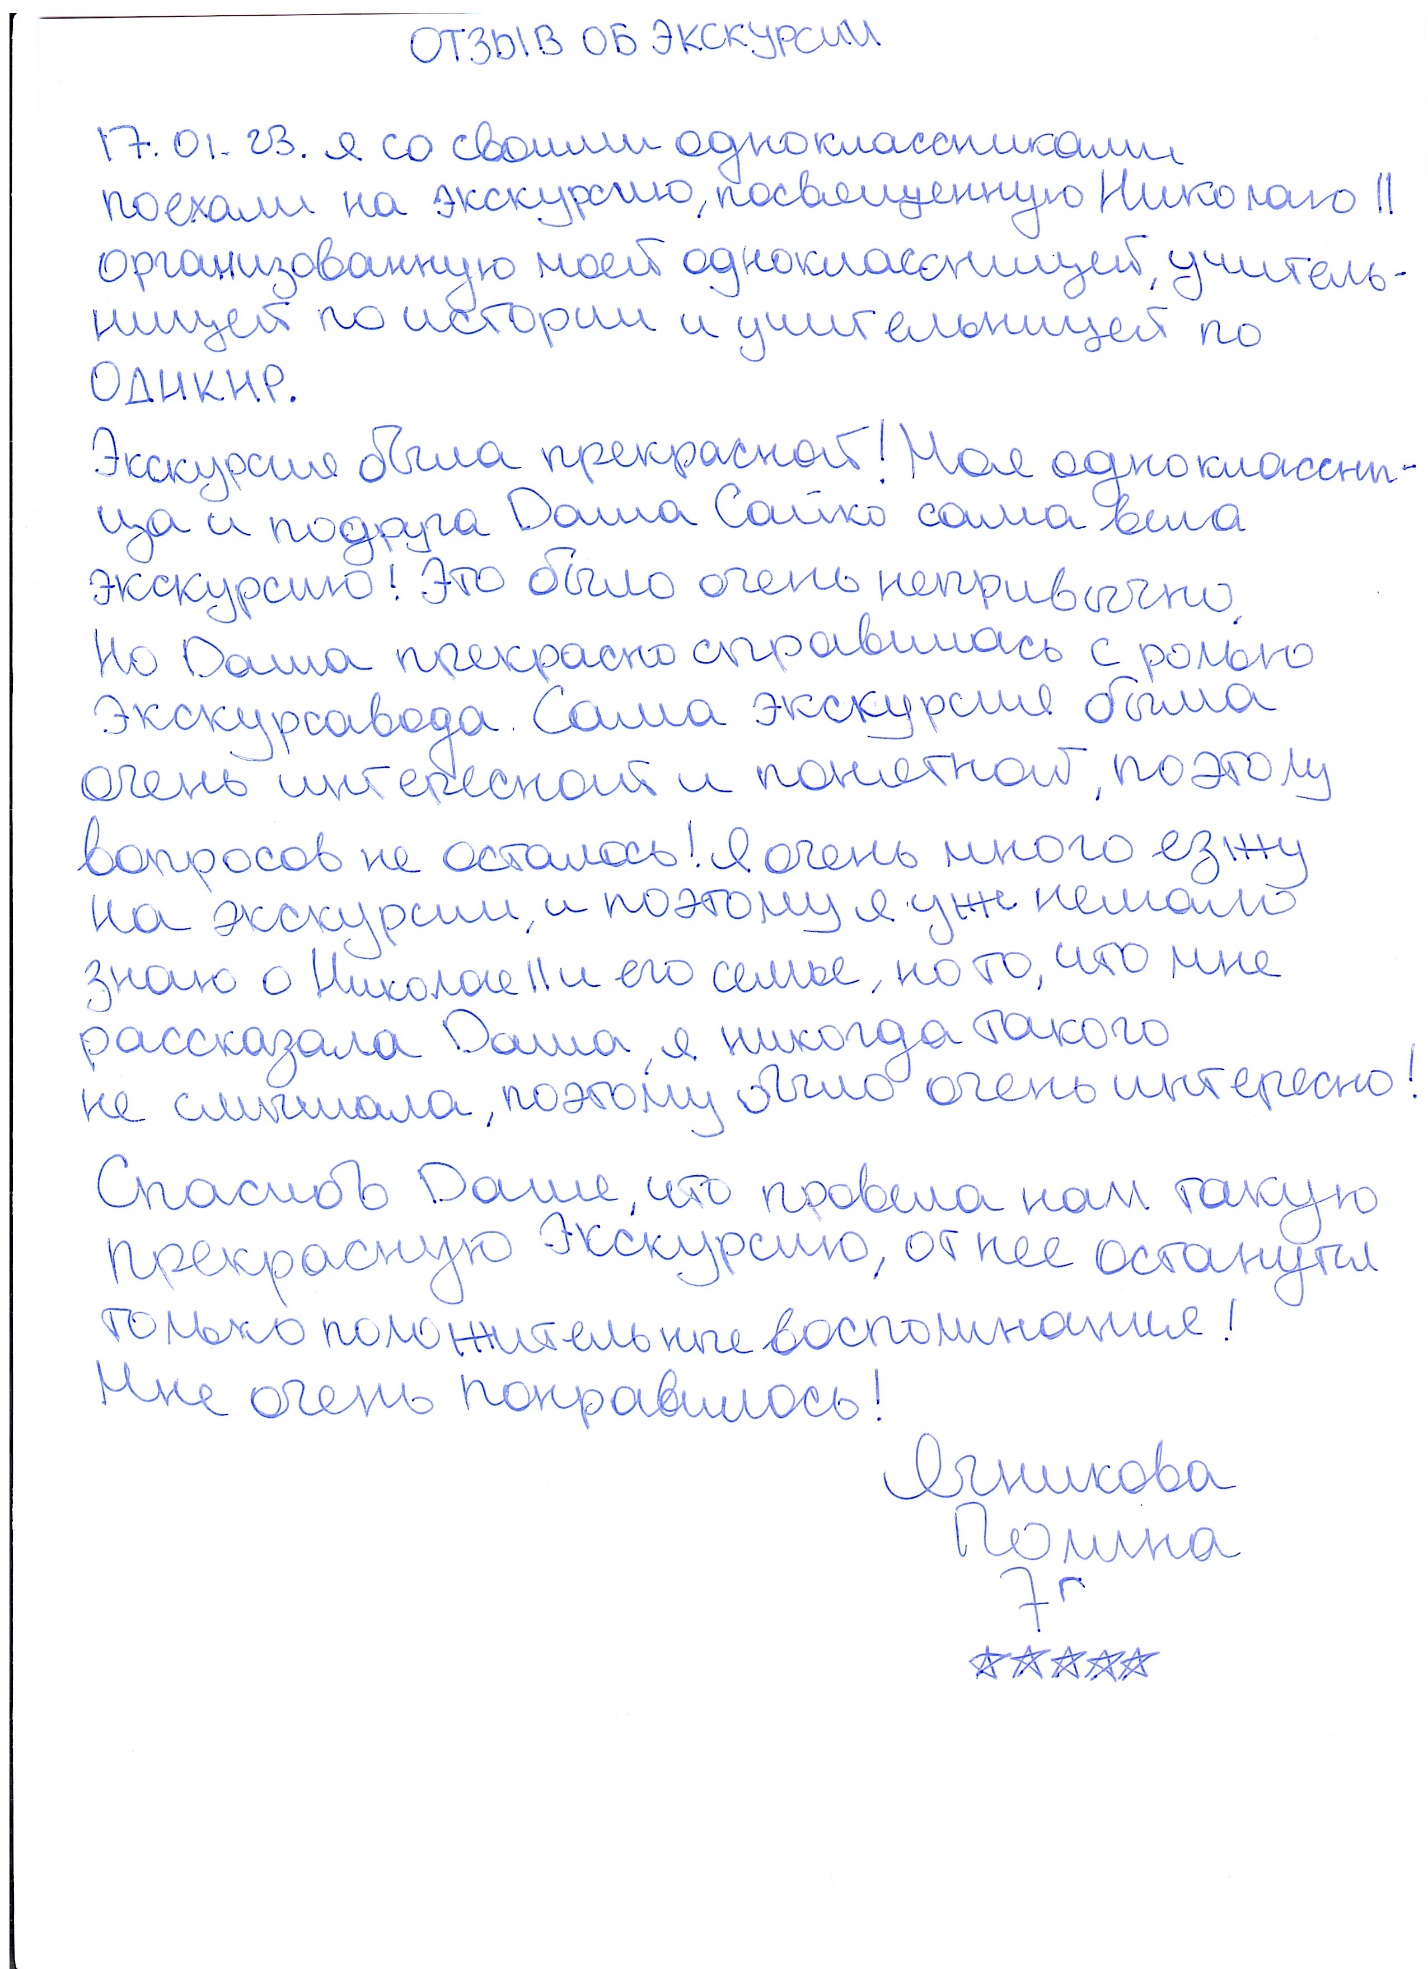 ОТЗЫВ ОБ ЭКСКУРСИИ
17.01.23. я со своими одноклассниками
поехали на экскурсию, посвященную Николаю II
организованную моей одноклассницей, учитель-
ницей по истории и учительницей по
ОДНКНР.
Экскурсия была прекрасной! Моя однокласни-
ца и подруга Даша Сайко сама вела
экскурсию! Это было очень непривычно,
Но Даша прекрасно справилась с ролью
Экскурсавода. Сама экскурсия была
очень интересной и понятной, поэтому
вопросов не осталось! Я очень много езжу
на экскурсии, и поэтому я уже немало
знаю о Николае II и его семье, но то, что мне
рассказала Даша, я никогда такого
не слышала, поэтому было очень интересно!
Спасибо Даше, что провела нам такую
прекрасную Экскурсию, от нее останутся
только положительные воспоминания!
Мне очень понравилось!
Ячникова
Полина
7г
☆☆☆☆☆